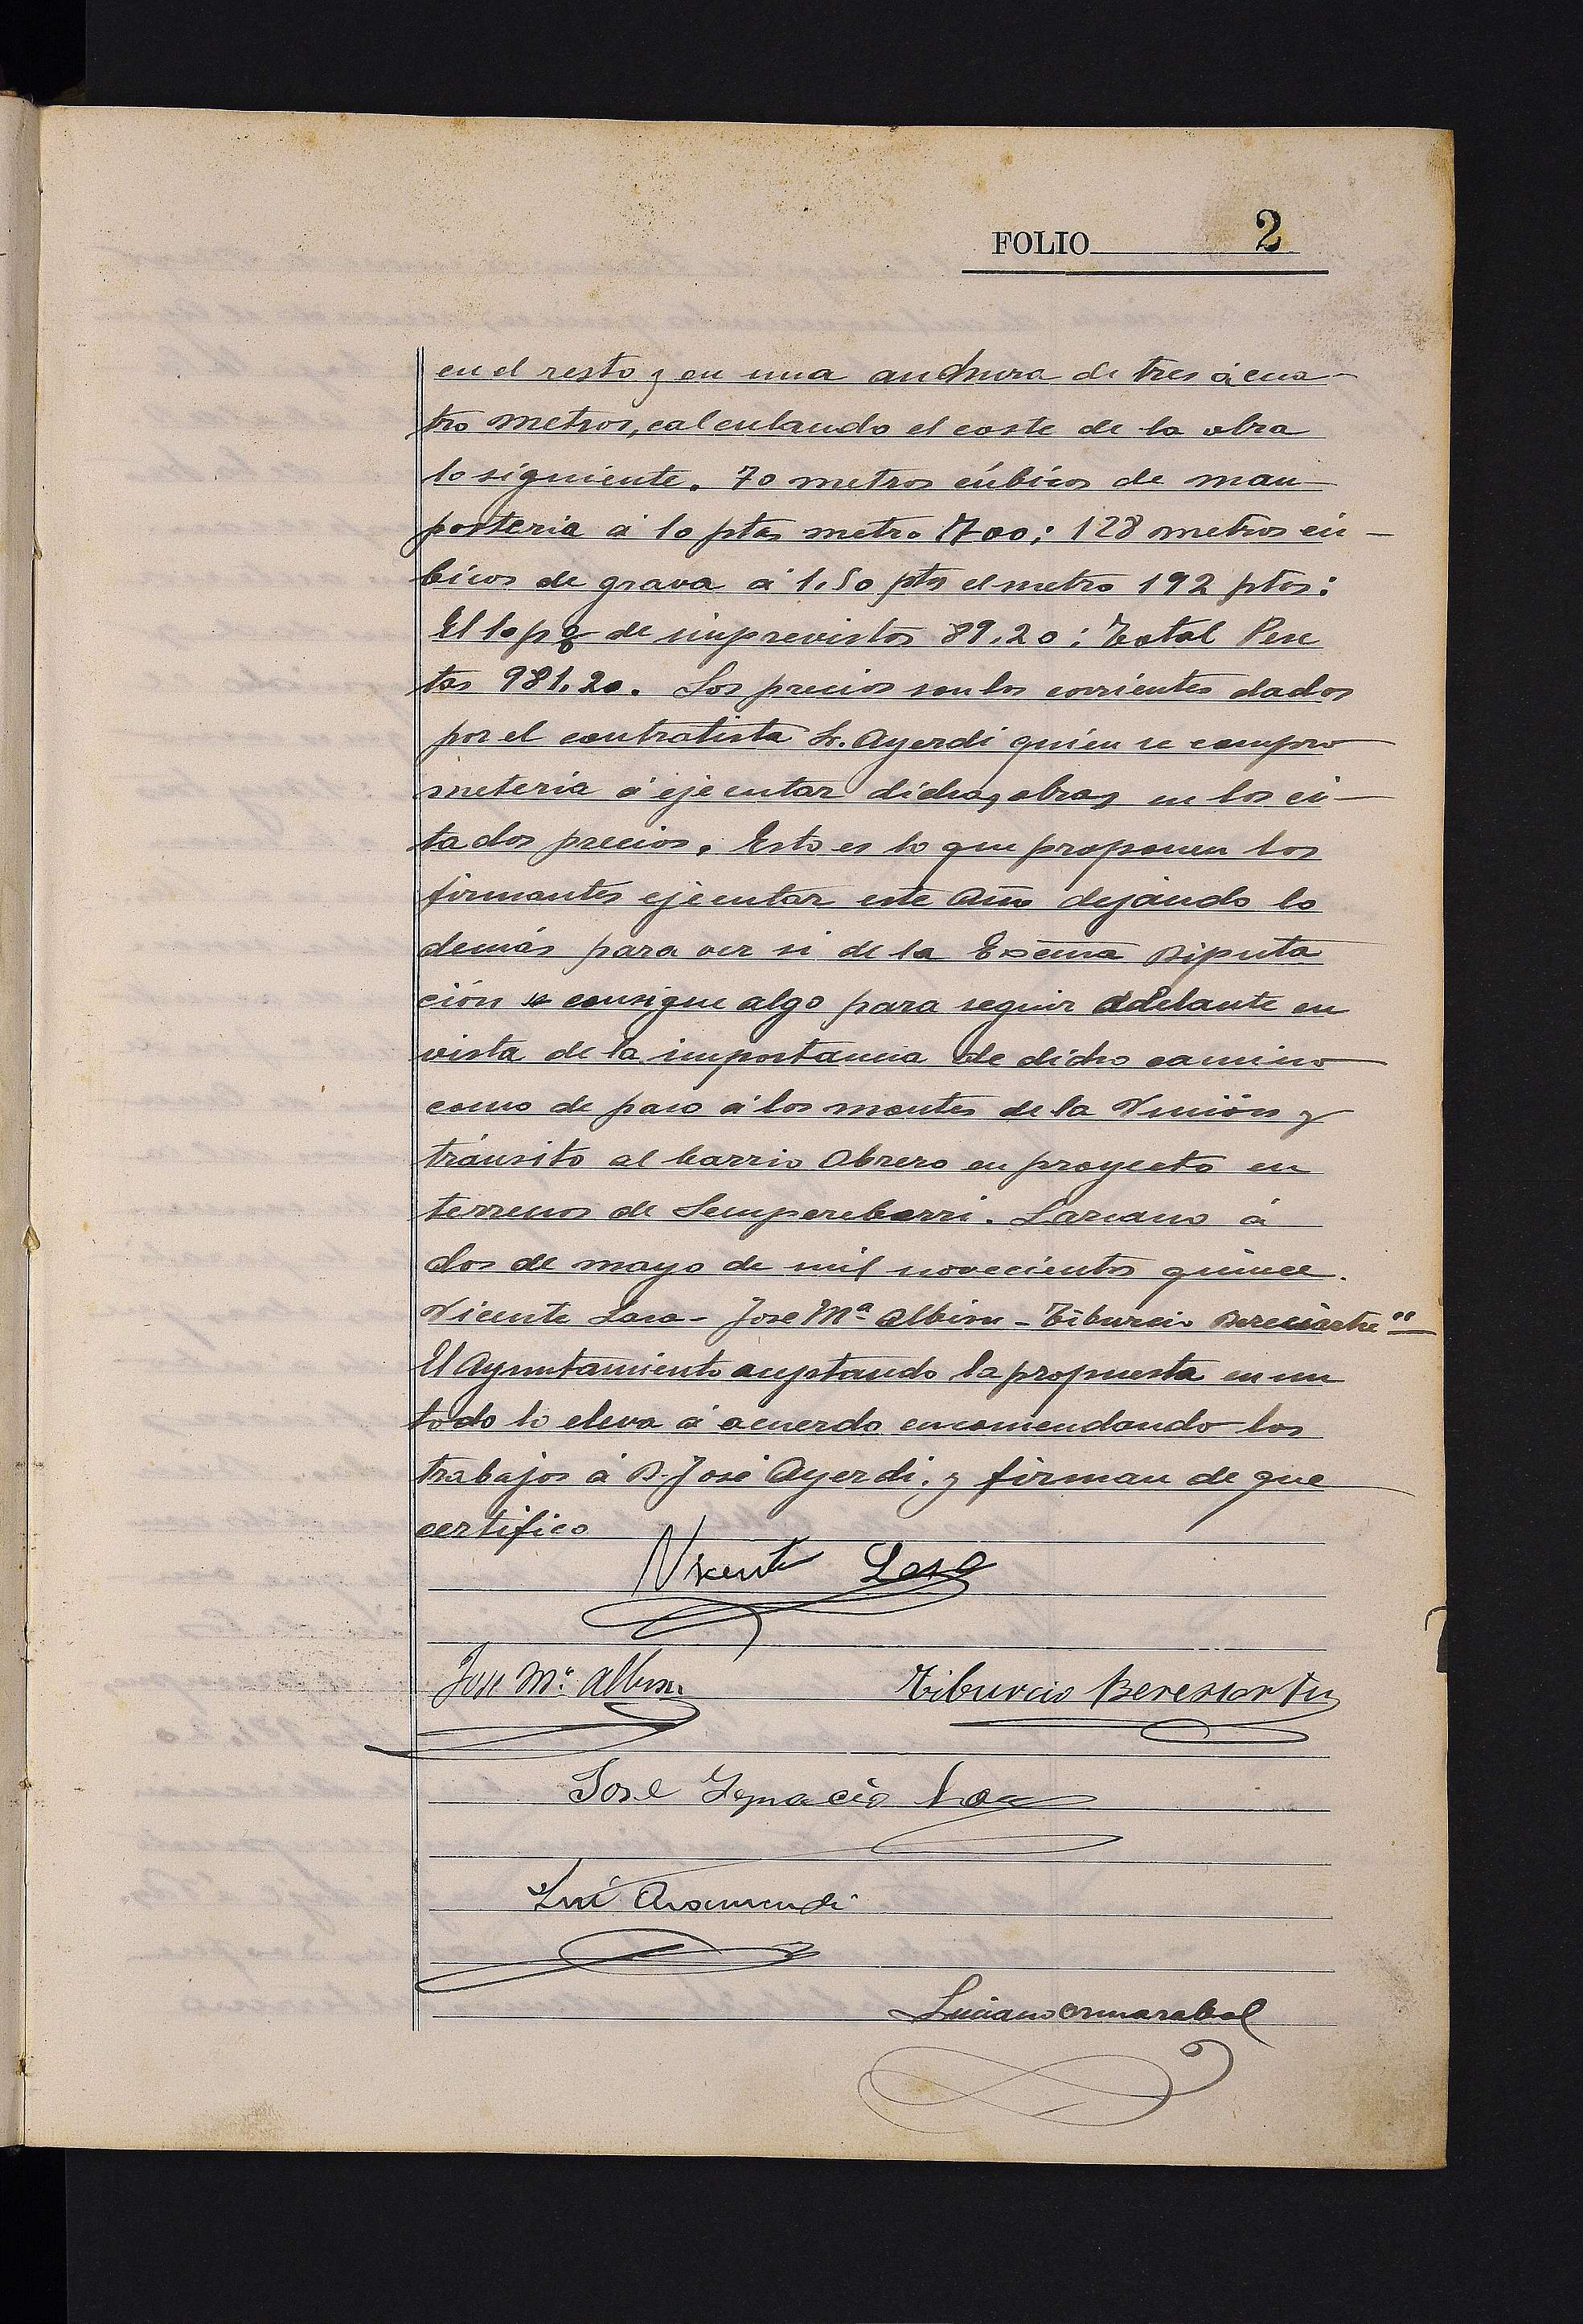 FOLIO 2
en el resto y en una anchura de tres á cua-
tro metros, calculando el coste de la obra
lo siguiente. 70 metros cúbicos de man-
posteria á 10 ptas metro 700; 128 metros cú-
bicos de grava á 1,50 ptas el metro 192 ptas:
El 10 p% de imprevistos 89,20: Total Pese
tas 981,20. Los precios son los corrientes dados
por el contratista Sr. Ayerdi quien se compro
meteria á ejecutar dichas obras en los ci-
tados precios. Esto es lo que proponen los
firmantes ejecutar este Año dejando lo
demás para ver si de la Excma Diputa
ción se consigue algo para seguir adelante en
vista de la importancia de dicho camino
como de paso á los montes de la Unión y
tránsito al barrio Obrero en proyecto en
terrenos de Semperebarri. Lazcano á
dos de mayo de mil novecientos quince.
Vicente Lasa - José Mª Albisu - Tiburcio Bereciartu"
El Ayuntamiento aceptando la propuesta en un
todo lo eleva á acuerdo encomendando los
trabajos á D. José Ayerdi. y firman de que
certifico
Vicente Lasa
Jose Mª Albisu
Tiburcio Bereciartu
José Ignacio
Luis Aramendi
Luciano Ormazabal